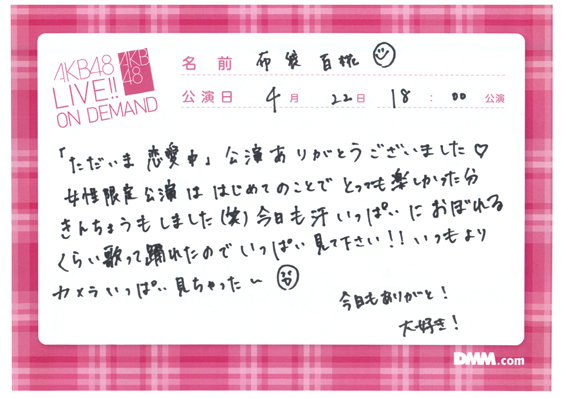 AKB48
LIVE!!
ON DEMAND
AKB
48
名前 布袋 百椛
公演日 4月 22日 18:00 公演
「ただいま 恋愛中」公演ありがとうございました♡
女性限定公演は はじめてのことで とっても楽しかった分
きんちょうもしました(笑)今日も汗いっぱいにおぼれる
くらい歌って踊れたのでいっぱい見て下さい!!いつもより
カメラいっぱい見ちゃった〜
今日もありがと!
大好き!
DMM.com